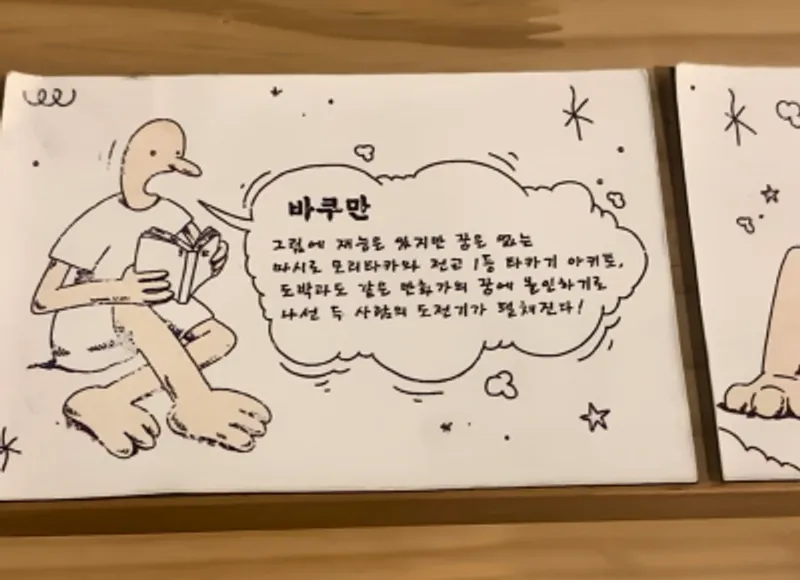 바쿠만
그림에 재능은 있지만 꿈은 없는
마시로 모리타카와 전교 1등 타카기 아키토,
도박과도 같은 만화가의 꿈에 올인하기로
나선 두 사람의 도전기가 펼쳐진다!